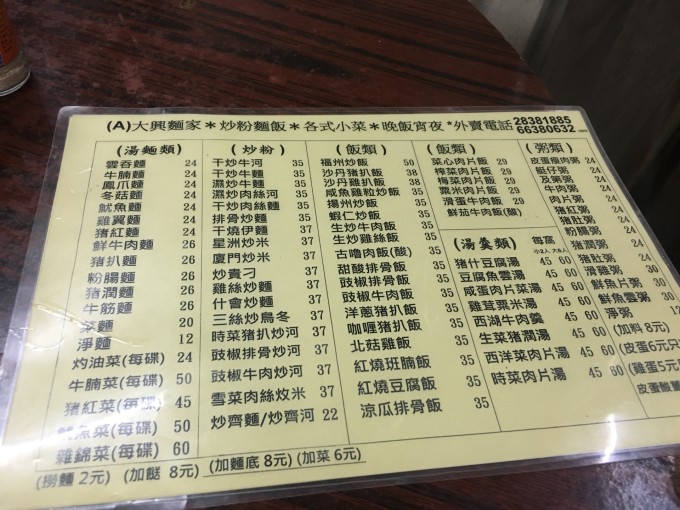 (A)大興麵家＊炒粉麵飯＊各式小菜＊晚飯宵夜*外賣電話 28381885
66380632
(湯麵類)
雲吞麵 24
牛腩麵 24
鳳爪麵 24
冬菇麵 24
魷魚麵 24
雞翼麵 24
猪紅麵 24
鮮牛肉麵 26
猪扒麵 26
粉腸麵 26
猪潤麵 26
牛筋麵 26
菜麵 20
淨麵 12
灼油菜(每碟) 24
牛腩菜(每碟) 50
猪紅菜(每碟) 45
魷魚菜(每碟) 50
雜錦菜(每碟) 60
(炒粉)
干炒牛河 35
干炒牛麵 35
濕炒牛河 35
濕炒肉絲河 35
干炒肉絲麵 35
排骨炒麵 37
干燒伊麵 37
星洲炒米 37
廈門炒米 37
炒貴刁 37
雞絲炒麵 37
什會炒麵 37
三絲炒烏冬 37
時菜猪扒炒河 37
豉椒排骨炒河 37
豉椒牛肉炒河 37
雪菜肉絲炆米 37
炒齊麵/炒齊河 22
(飯類)
福州炒飯 50
沙丹猪扒飯 38
沙丹雞扒飯 38
咸魚雞粒炒飯 35
揚州炒飯 35
蝦仁炒飯 35
生炒牛肉飯 35
生炒雞絲飯 35
古嚕肉飯(酸) 35
甜酸排骨飯 35
豉椒排骨飯 35
豉椒牛肉飯 35
洋蔥猪扒飯 35
咖喱猪扒飯 35
北菇雞飯 35
紅燒班腩飯 35
紅燒豆腐飯 35
涼瓜排骨飯 35
(飯類)
菜心肉片飯 29
榨菜肉片飯 29
梅菜肉片飯 29
粟米肉片飯 29
滑蛋牛肉飯 29
鮮茄牛肉飯(酸)
(湯羹類) 每窩
猪什豆腐湯 45 60
豆腐魚雲湯 45 60
咸蛋肉片菜湯 45 60
雞茸粟米湯 45 60
西湖牛肉羹 45 60
生菜猪潤湯 45 60
西洋菜肉片湯 45 60
時菜肉片湯 45 60
(粥類)
皮蛋瘦肉粥 24
艇仔粥 24
及第粥 24
牛肉粥 24
肉片粥 24
猪紅粥 24
猪肚粥 24
粉腸粥 24
猪潤粥 24
滑雞粥 30
鮮魚片粥 30
鮮魚雲粥 30
淨粥 12
(加料 8元)
(皮蛋 6元
(雞蛋 5元
(撈麵 2元) (加餸 8元) (加麵底 8元) (加菜 6元)